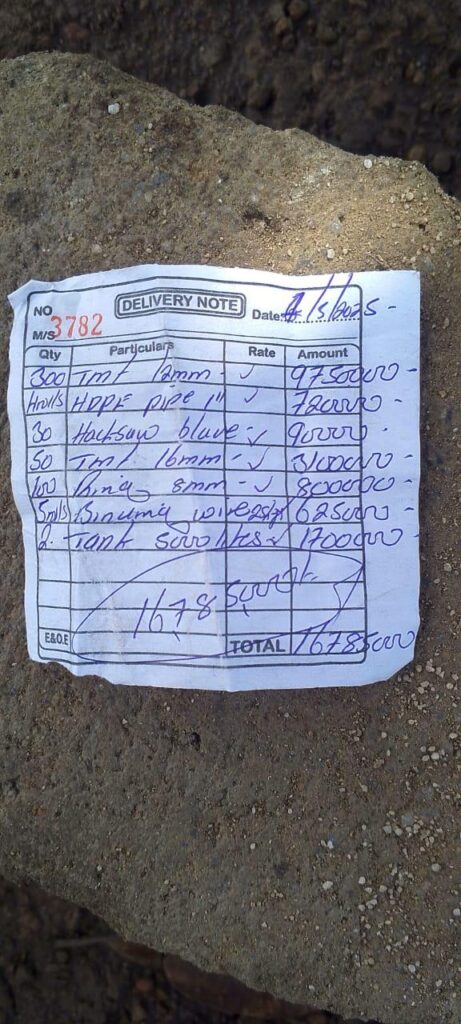 NO DELIVERY NOTE Date: /5/2025 -
M/S 3782
Qty Particulars Rate Amount
300 TMT 12mm - ✓ 9750000 -
4rolls HDPE pipe 1" ✓ 720000 -
30 Hacksaw blave - ✓ 90000 -
50 TMT 16mm - ✓ 3100000 -
100 Ring 8mm - ✓ 800000 -
5rolls Binding wire 25kg 625000 -
2 - Tank 5000 ltrs ✓ 1700000 -
16785000/=
E&O.E TOTAL 16785000